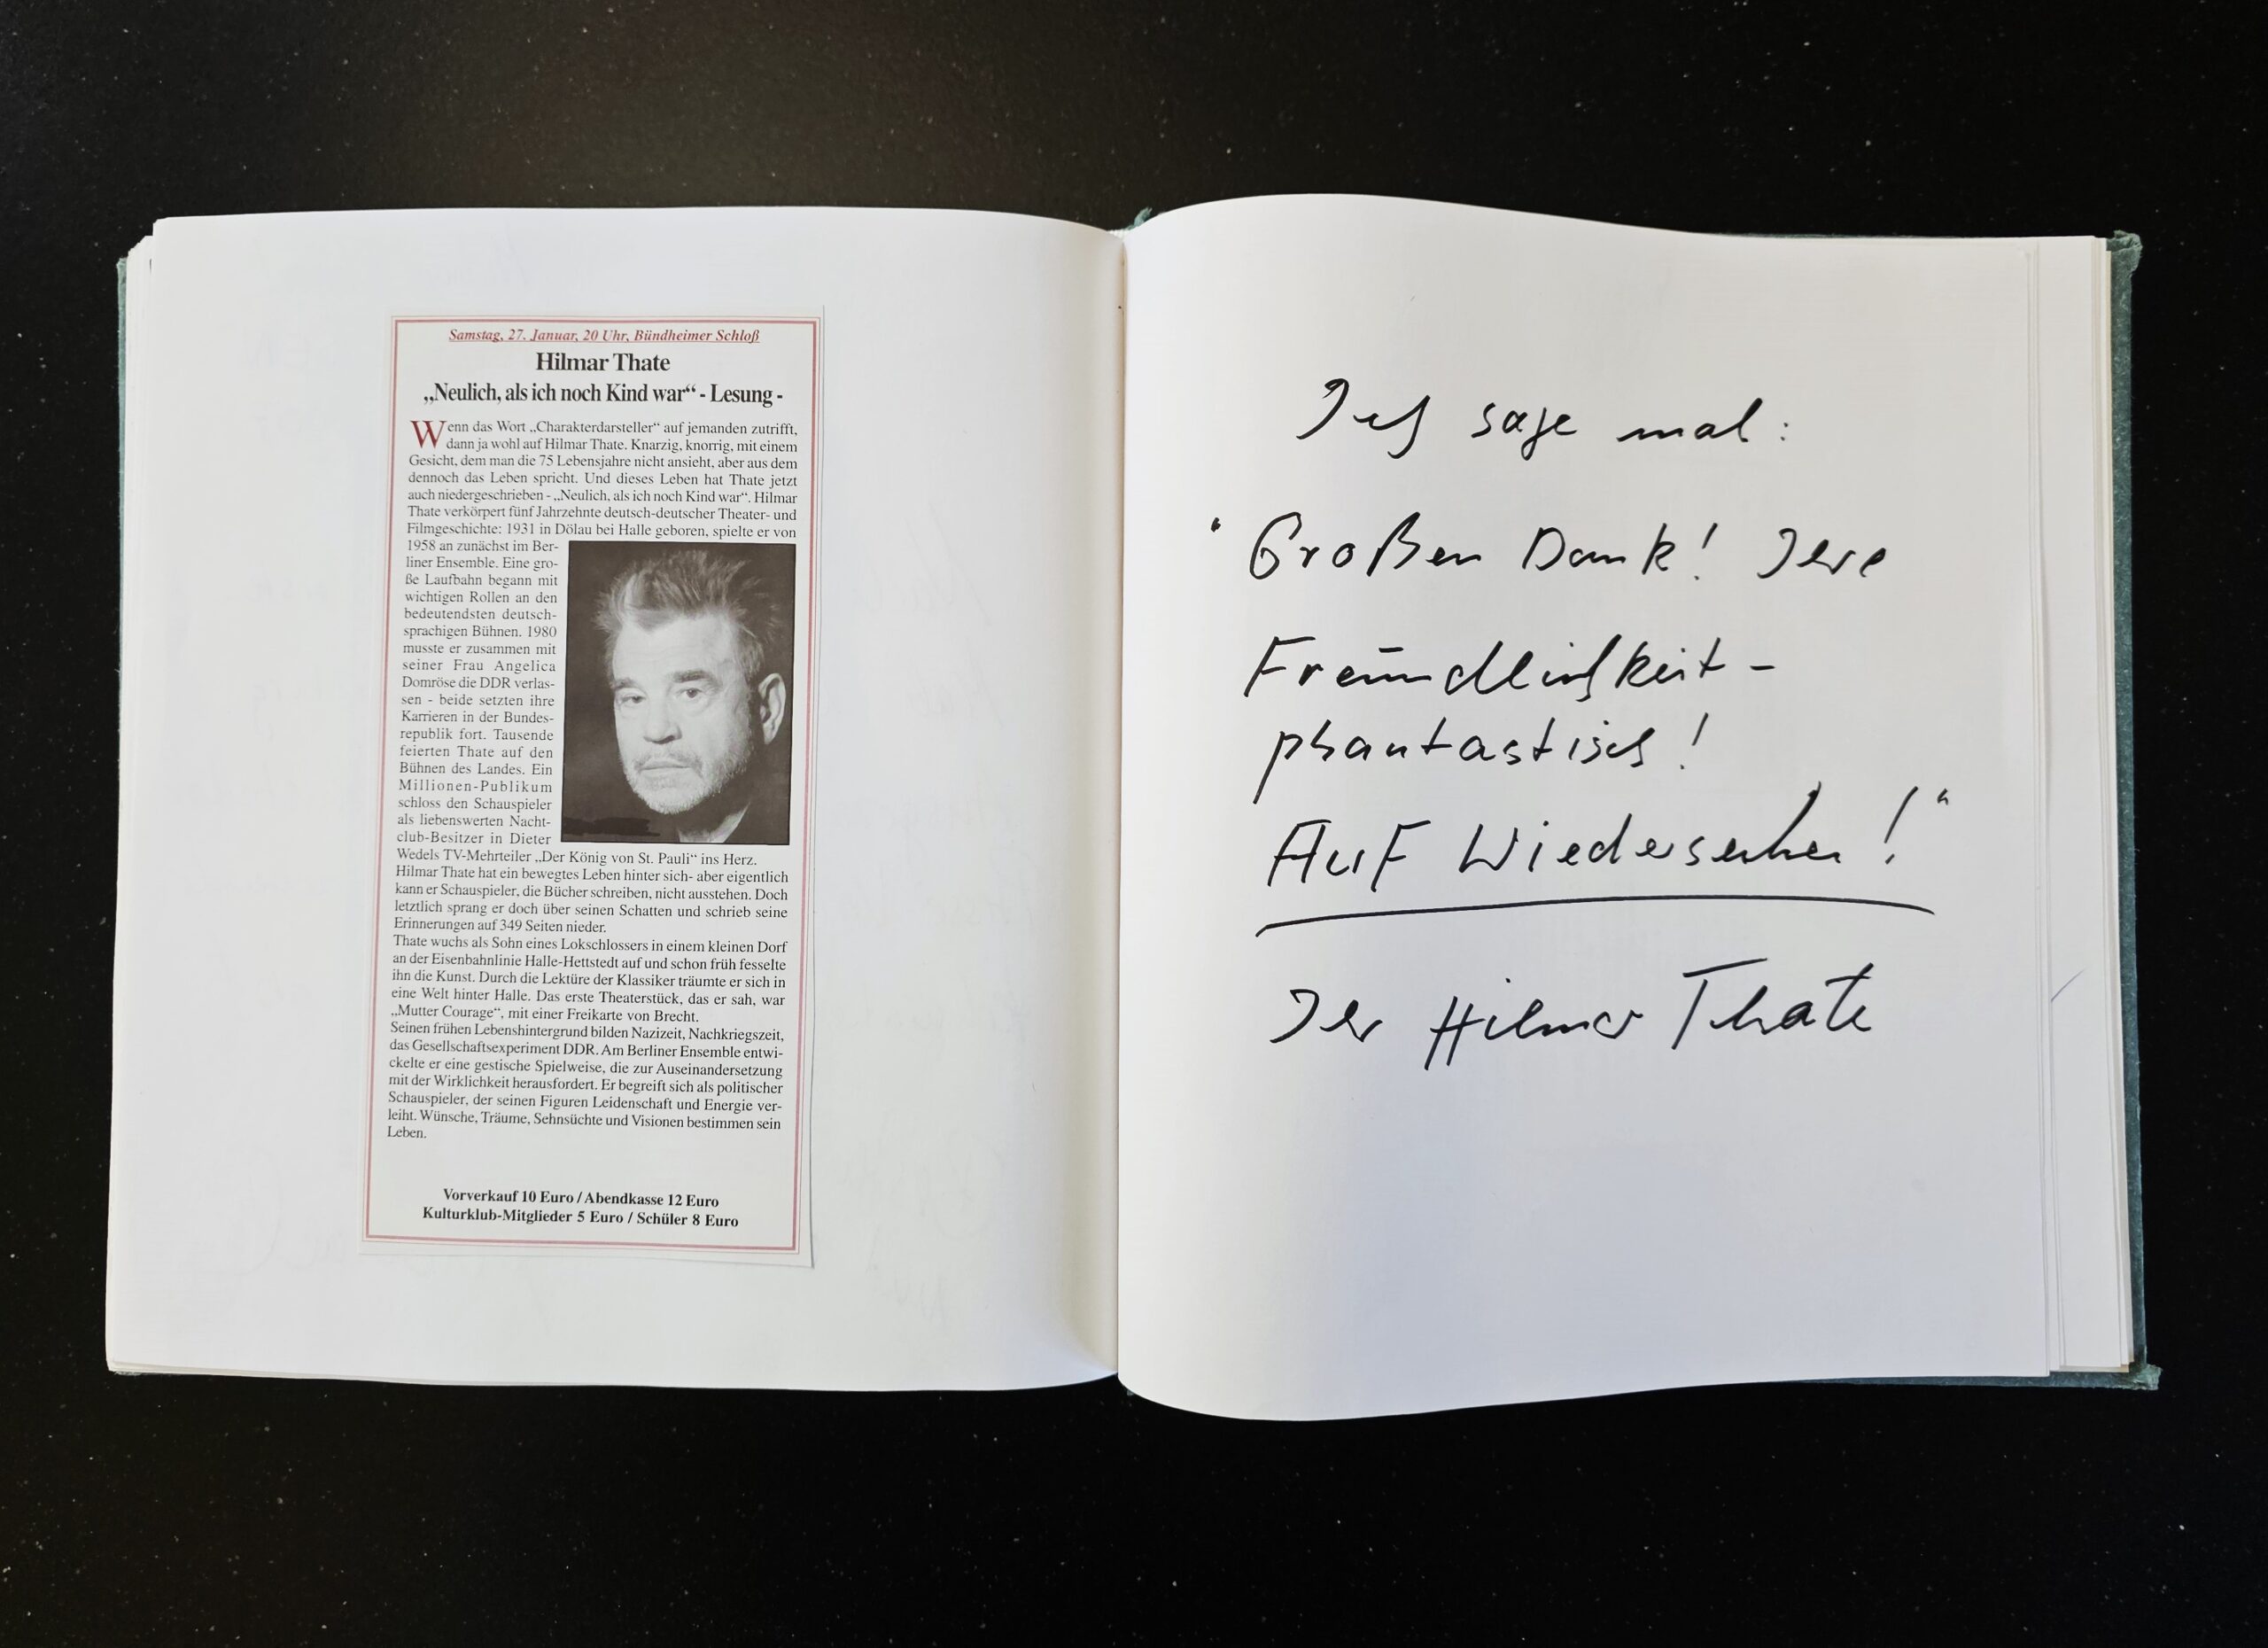 Samstag, 27. Januar, 20 Uhr, Bündheimer Schloß
Hilmar Thate
„Neulich, als ich noch Kind war“ - Lesung -
Wenn das Wort „Charakterdarsteller“ auf jemanden zutrifft,
dann ja wohl auf Hilmar Thate. Knarzig, knorrig, mit einem
Gesicht, dem man die 75 Lebensjahre nicht ansieht, aber aus dem
dennoch das Leben spricht. Und dieses Leben hat Thate jetzt
auch niedergeschrieben - „Neulich, als ich noch Kind war“. Hilmar
Thate verkörpert fünf Jahrzehnte deutsch-deutscher Theater- und
Filmgeschichte: 1931 in Dölau bei Halle geboren, spielte er von
1958 an zunächst im Ber-
liner Ensemble. Eine gro-
ße Laufbahn begann mit
wichtigen Rollen an den
bedeutendsten deutsch-
sprachigen Bühnen. 1980
musste er zusammen mit
seiner Frau Angelica
Domröse die DDR verlas-
sen - beide setzten ihre
Karrieren in der Bundes-
republik fort. Tausende
feierten Thate auf den
Bühnen des Landes. Ein
Millionen-Publikum
schloss den Schauspieler
als liebenswerten Nacht-
club-Besitzer in Dieter
Wedels TV-Mehrteiler „Der König von St. Pauli“ ins Herz.
Hilmar Thate hat ein bewegtes Leben hinter sich- aber eigentlich
kann er Schauspieler, die Bücher schreiben, nicht ausstehen. Doch
letztlich sprang er doch über seinen Schatten und schrieb seine
Erinnerungen auf 349 Seiten nieder.
Thate wuchs als Sohn eines Lokschlossers in einem kleinen Dorf
an der Eisenbahnlinie Halle-Hettstedt auf und schon früh fesselte
ihn die Kunst. Durch die Lektüre der Klassiker träumte er sich in
eine Welt hinter Halle. Das erste Theaterstück, das er sah, war
„Mutter Courage“, mit einer Freikarte von Brecht.
Seinen frühen Lebenshintergrund bilden Nazizeit, Nachkriegszeit,
das Gesellschaftsexperiment DDR. Am Berliner Ensemble entwi-
ckelte er eine gestische Spielweise, die zur Auseinandersetzung
mit der Wirklichkeit herausfordert. Er begreift sich als politischer
Schauspieler, der seinen Figuren Leidenschaft und Energie ver-
leiht. Wünsche, Träume, Sehnsüchte und Visionen bestimmen sein
Leben.
Vorverkauf 10 Euro / Abendkasse 12 Euro
Kulturklub-Mitglieder 5 Euro / Schüler 8 Euro
Ich sage mal:
"Großen Dank! Ihre
Freundlichkeit -
phantastisch!
Auf Wiedersehen!"
Ihr Hilmar Thate